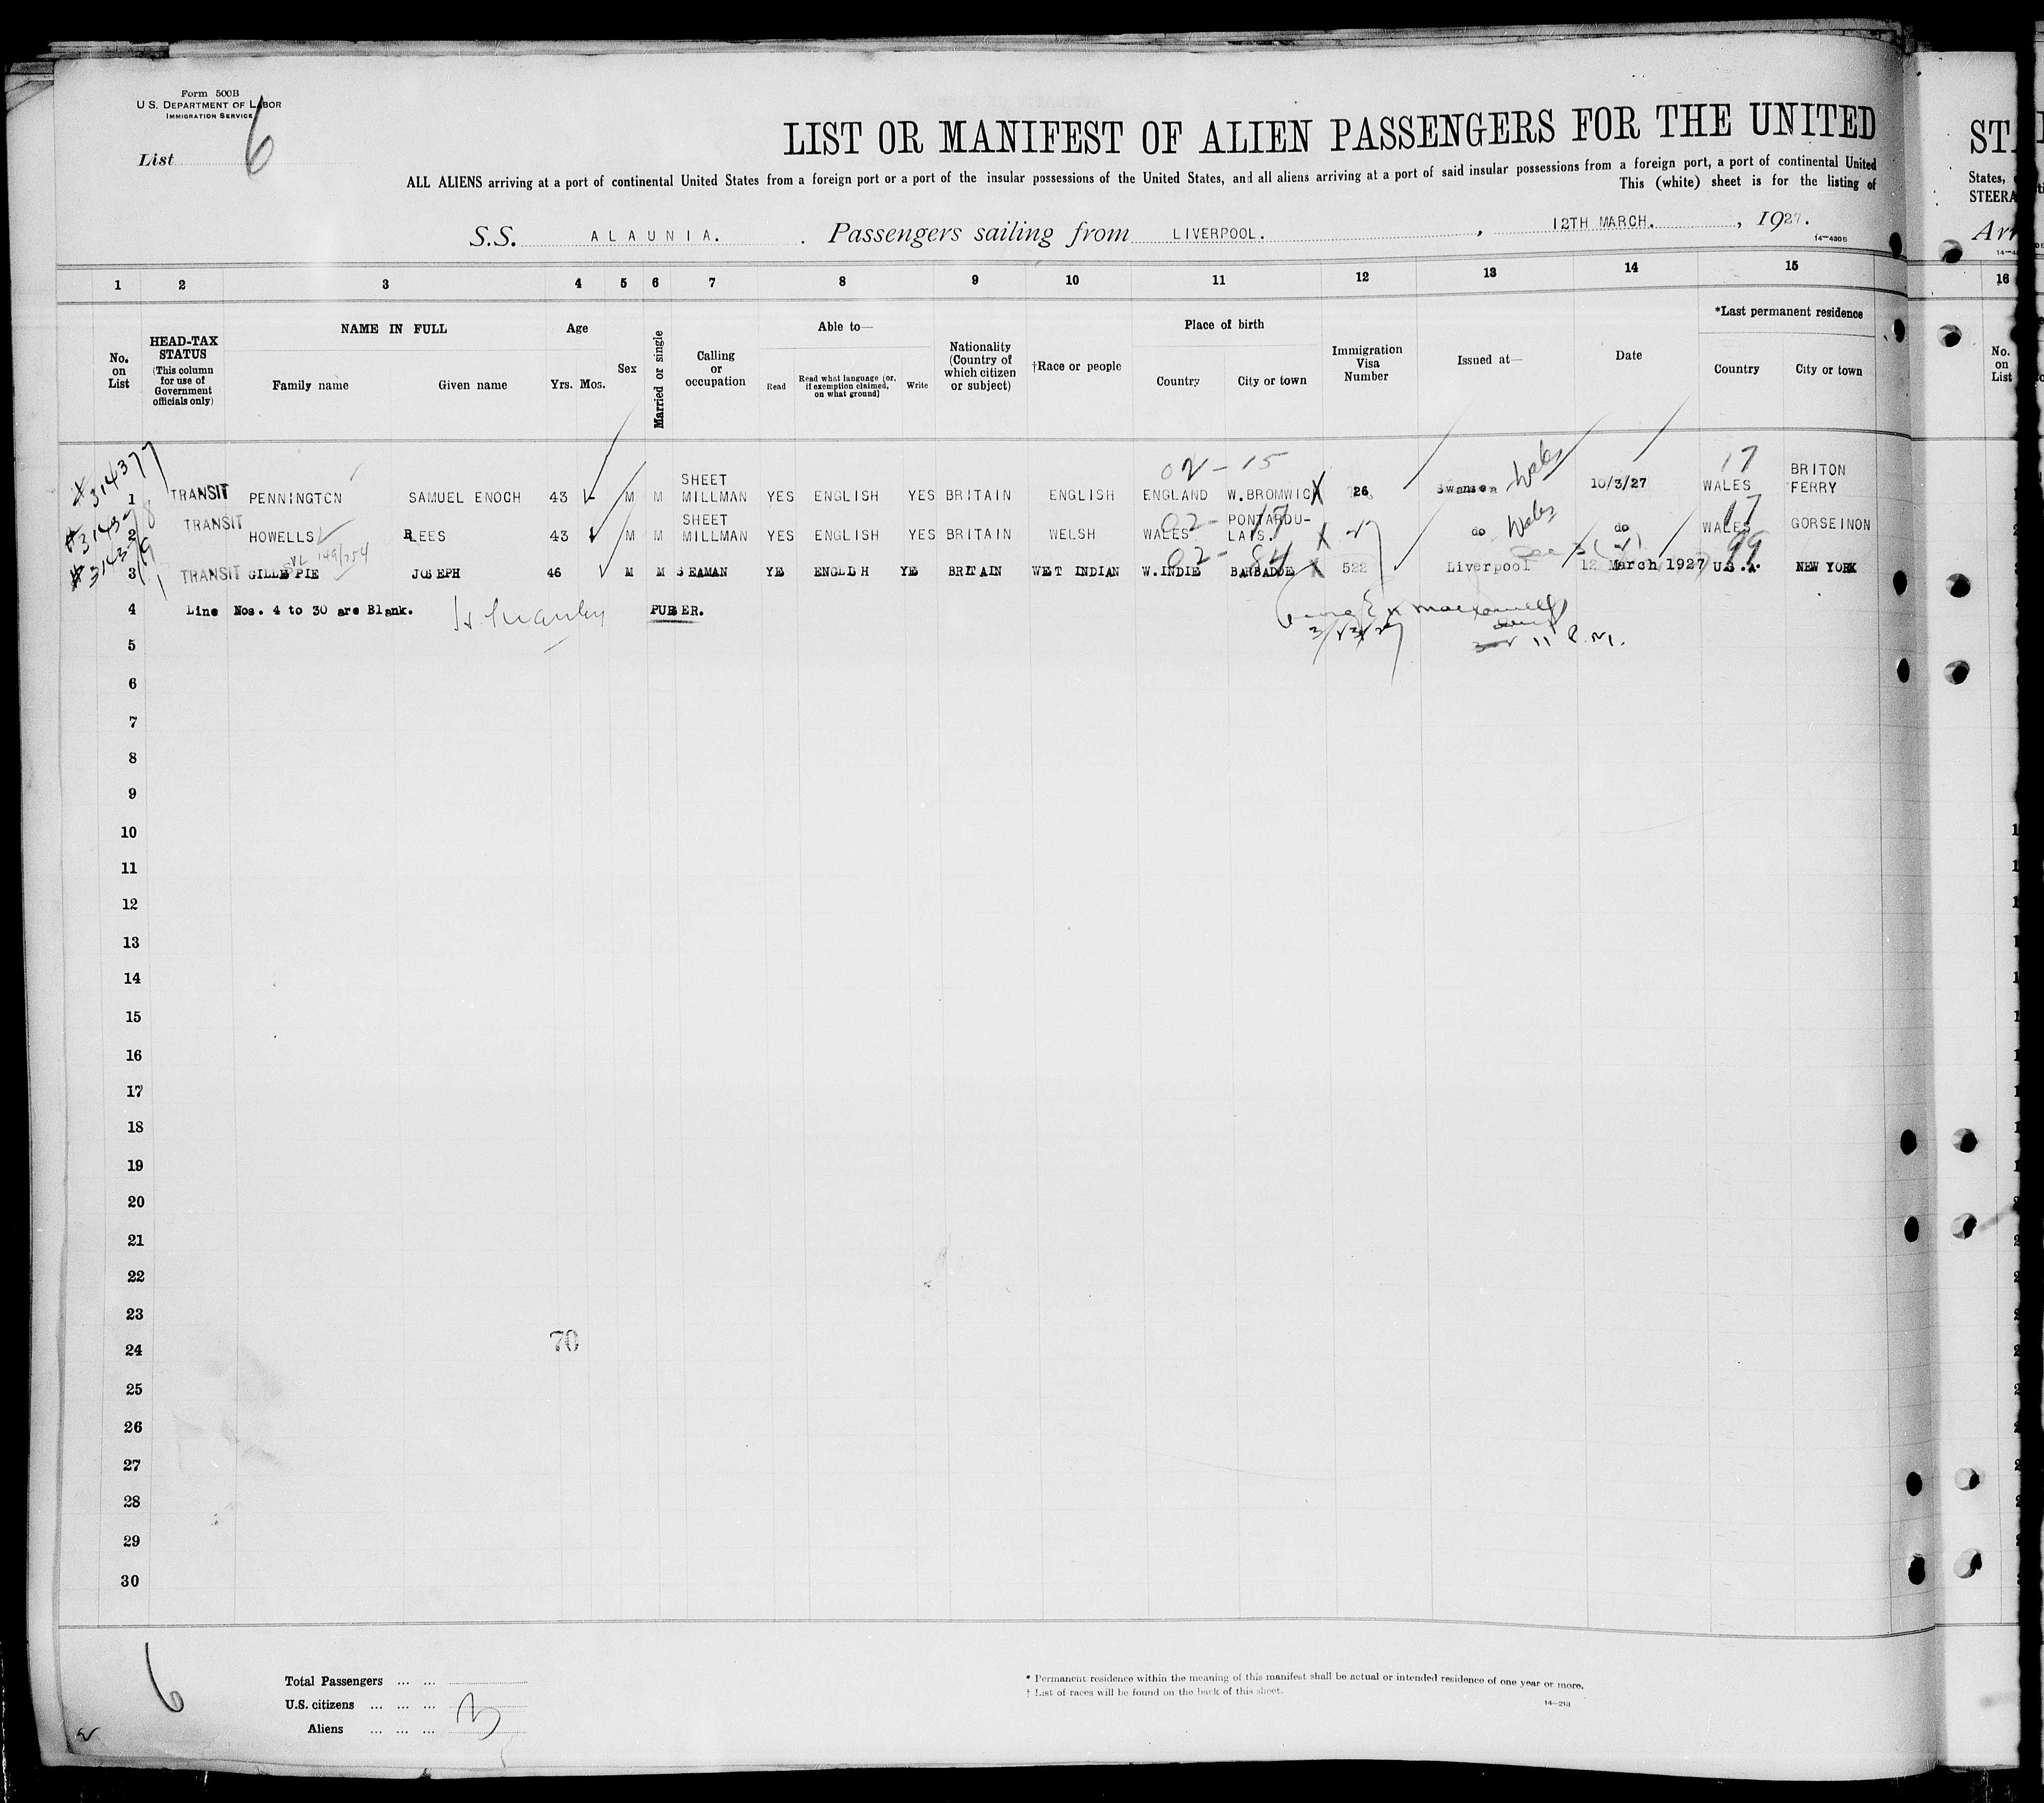 Form 500B
U.S. DEPARTMENT OF LABOR
IMMIGRATION SERVICE
List 6
LIST OR MANIFEST OF ALIEN PASSENGERS FOR THE UNITED
ALL ALIENS arriving at a port of continental United States from a foreign port or a port of the insular possessions of the United States, and all aliens arriving at a port of said insular possessions from a foreign port, a port of continental United
This (white) sheet is for the listing of
S.S. ALAUNIA. Passengers sailing from LIVERPOOL. , 12TH MARCH. , 1927.
14—430B
1 2 3 4 5 6 7 8 9 10 11 12 13 14 15
No. on List
HEAD-TAX STATUS (This column for use of Government officials only)
NAME IN FULL
Family name Given name
Age
Yrs. Mos.
Sex
Married or single
Calling or occupation
Able to—
Read Read what language (or, if exemption claimed, on what ground) Write
Nationality (Country of which citizen or subject)
†Race or people
Place of birth
Country City or town
Immigration Visa Number
Issued at—
Date
*Last permanent residence
Country City or town
#314377 02-15 Wales 17
1 TRANSIT PENNINGTON SAMUEL ENOCH 43 M M SHEET MILLMAN YES ENGLISH YES BRITAIN ENGLISH ENGLAND W.BROMWICH 26 Swansea 10/3/27 WALES BRITON FERRY
02-17 Wales 17
2 TRANSIT HOWELLS REES 43 M M SHEET MILLMAN YES ENGLISH YES BRITAIN WELSH WALES PONTARDU-LAIS. do do WALES GORSEINON
02-84 99
3 TRANSIT GILLE PIE JOSEPH 46 M M SEAMAN YE ENGLI H YE BRITAIN WE T INDIAN W.INDIE BARBADOE 522 Liverpool 12 March 1927 U.S.A. NEW YORK
4 Line Nos. 4 to 30 are Blank. PURSER.
11 P.M.
5
6
7
8
9
10
11
12
13
14
15
16
17
18
19
20
21
22
23
70
24
25
26
27
28
29
30
6
Total Passengers ... ...
U.S. citizens ... ... ...
Aliens ... ... ... 3
* Permanent residence within the meaning of this manifest shall be actual or intended residence of one year or more.
† List of races will be found on the back of this sheet.
14—213
STA
States,
STEERA
Arr
16
No. on List